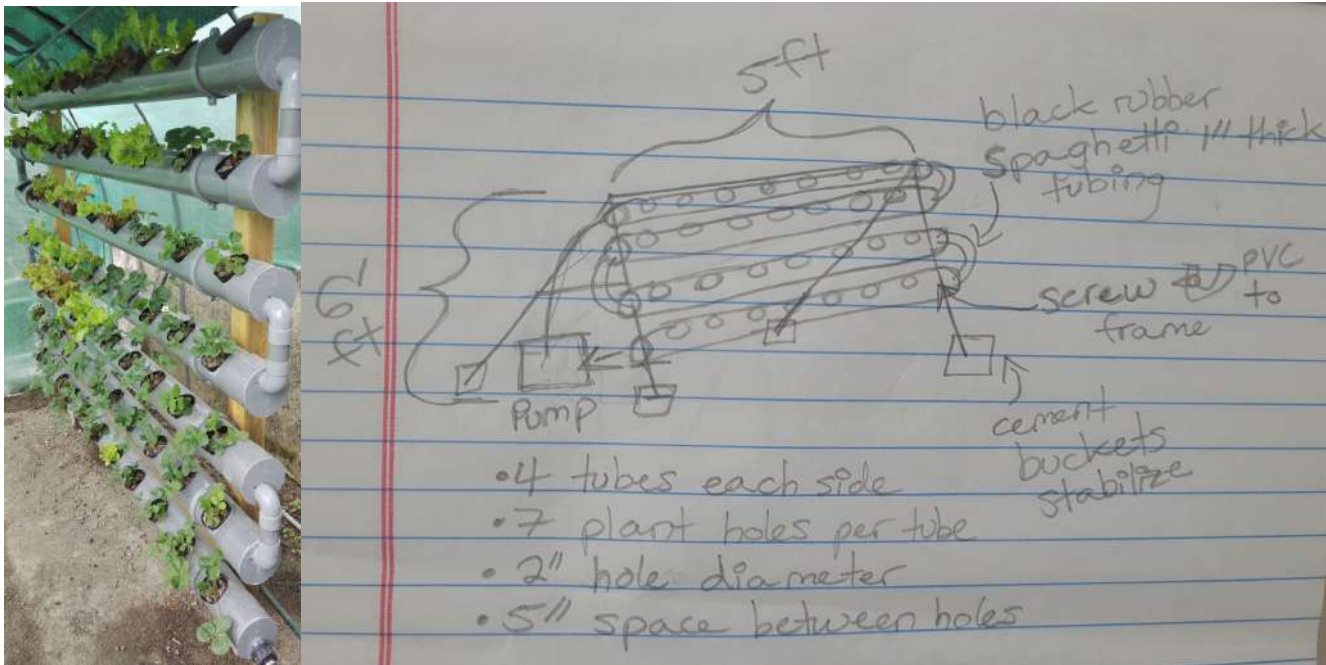 5 ft
black rubber
spaghetti 1" thick
tubing
6'
ft
screw PVC
to
frame
Pump
cement
buckets
stabilize
• 4 tubes each side
• 7 plant holes per tube
• 2" hole diameter
• 5" space between holes